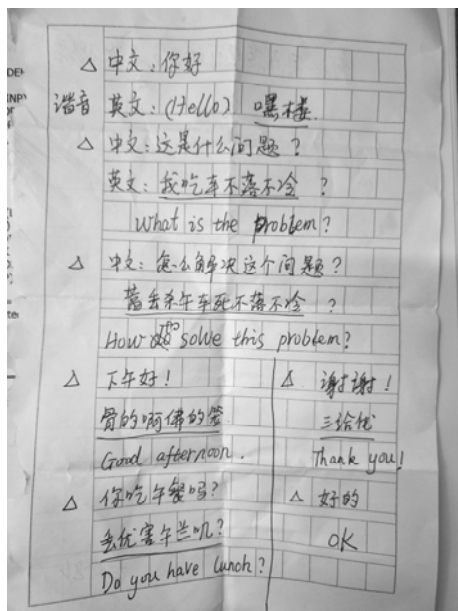 △ 中文：你好
谐音 英文：(Hello) 嘿楼
△ 中文：这是什么问题？
英文：我吃车不落不冷？
What is the problem?
△ 中文：怎么解决这个问题？
丢杀午车死不落不冷？
How to solve this problem?
△ 下午好！
骨的啊佛的笨
Good afternoon.
△ 你吃午餐吗？
丢优害午兰叽？
Do you have lunch?
△ 谢谢！
三给优
Thank you!
△ 好的
OK